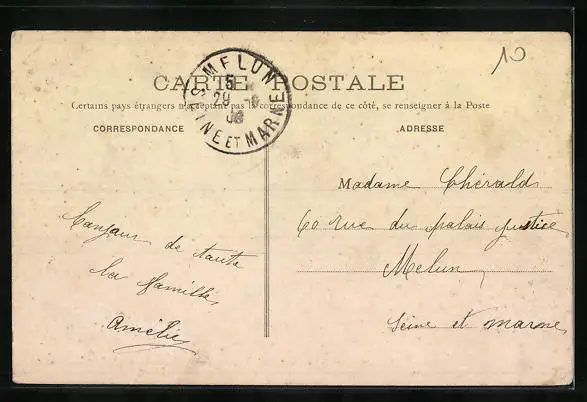 10
CARTE POSTALE
MELUN
SEINE ET MARNE
5
29
08
Certains pays étrangers n'acceptant pas la correspondance de ce côté, se renseigner à la Poste
CORRESPONDANCE
ADRESSE
Madame
60 rue du palais justice
Melun
Seine et marne
de toute
la famille
Amélie